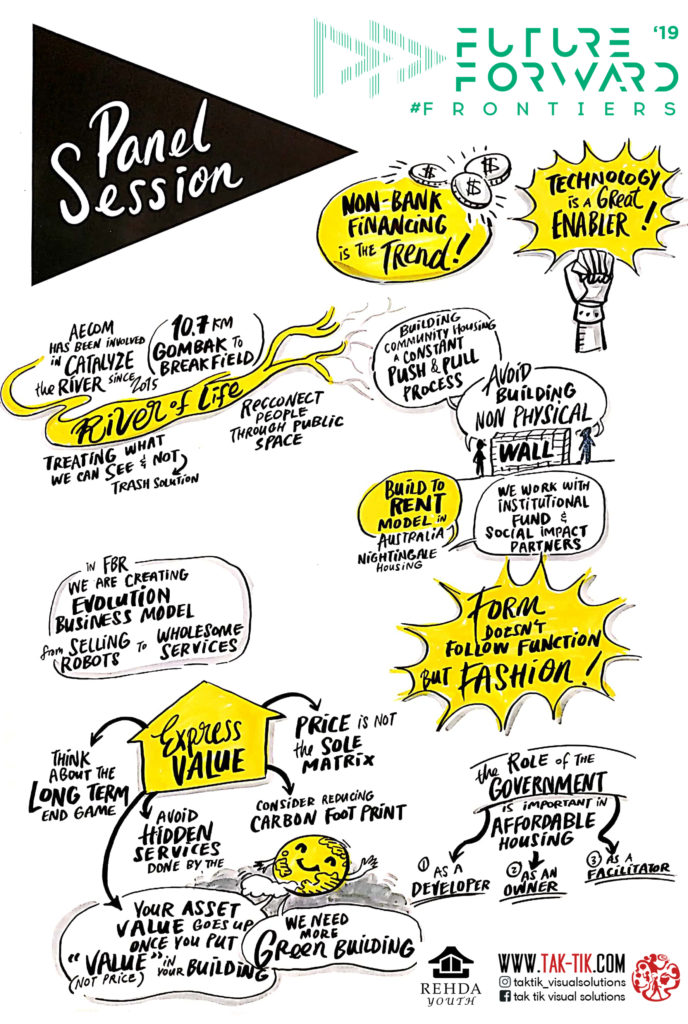 FUTURE '19
FORWARD
#FRONTIERS
Panel
Session
NON-BANK
FINANCING
is THE TREND!
$
$
$
TECHNOLOGY
is A GREAT
ENABLER!
AECOM
HAS BEEN INVOLVED
in CATALYZE
the RIVER SINCE 2015
10.7 KM
GOMBAK TO
BREAKFIELD
RIVER OF LIFE
RECCONECT
PEOPLE
THROUGH PUBLIC
SPACE
TREATING WHAT
WE CAN SEE & NOT
TRASH SOLUTION
BUILDING
COMMUNITY HOUSING
A CONSTANT
PUSH & PULL
PROCESS
AVOID
BUILDING
NON PHYSICAL
WALL
BUILD TO
RENT
MODEL in
AUSTRALIA
NIGHTINGALE
HOUSING
WE WORK WITH
INSTITUTIONAL
FUND &
SOCIAL IMPACT
PARTNERS
in FBR
WE ARE CREATING
EVOLUTION
BUSINESS MODEL
from SELLING TO WHOLESOME
ROBOTS SERVICES
FORM
DOESN'T
FOLLOW FUNCTION
BUT FASHION!
Express
VALUE
PRICE is NOT
the SOLE
MATRIX
THINK
ABOUT THE
LONG TERM
END GAME
AVOID
HIDDEN
SERVICES
DONE BY THE
CONSIDER REDUCING
CARBON FOOT PRINT
YOUR ASSET
VALUE GOES UP
ONCE YOU PUT
"VALUE" in
(NOT PRICE) YOUR BUILDING
WE NEED
MORE
GREEN BUILDING
the ROLE OF THE
GOVERNMENT
is IMPORTANT in
AFFORDABLE
HOUSING
① AS A
DEVELOPER
② AS AN
OWNER
③ AS A
FACILITATOR
REHDA
YOUTH
WWW.TAK-TIK.COM
taktik_visualsolutions
tak tik visual solutions